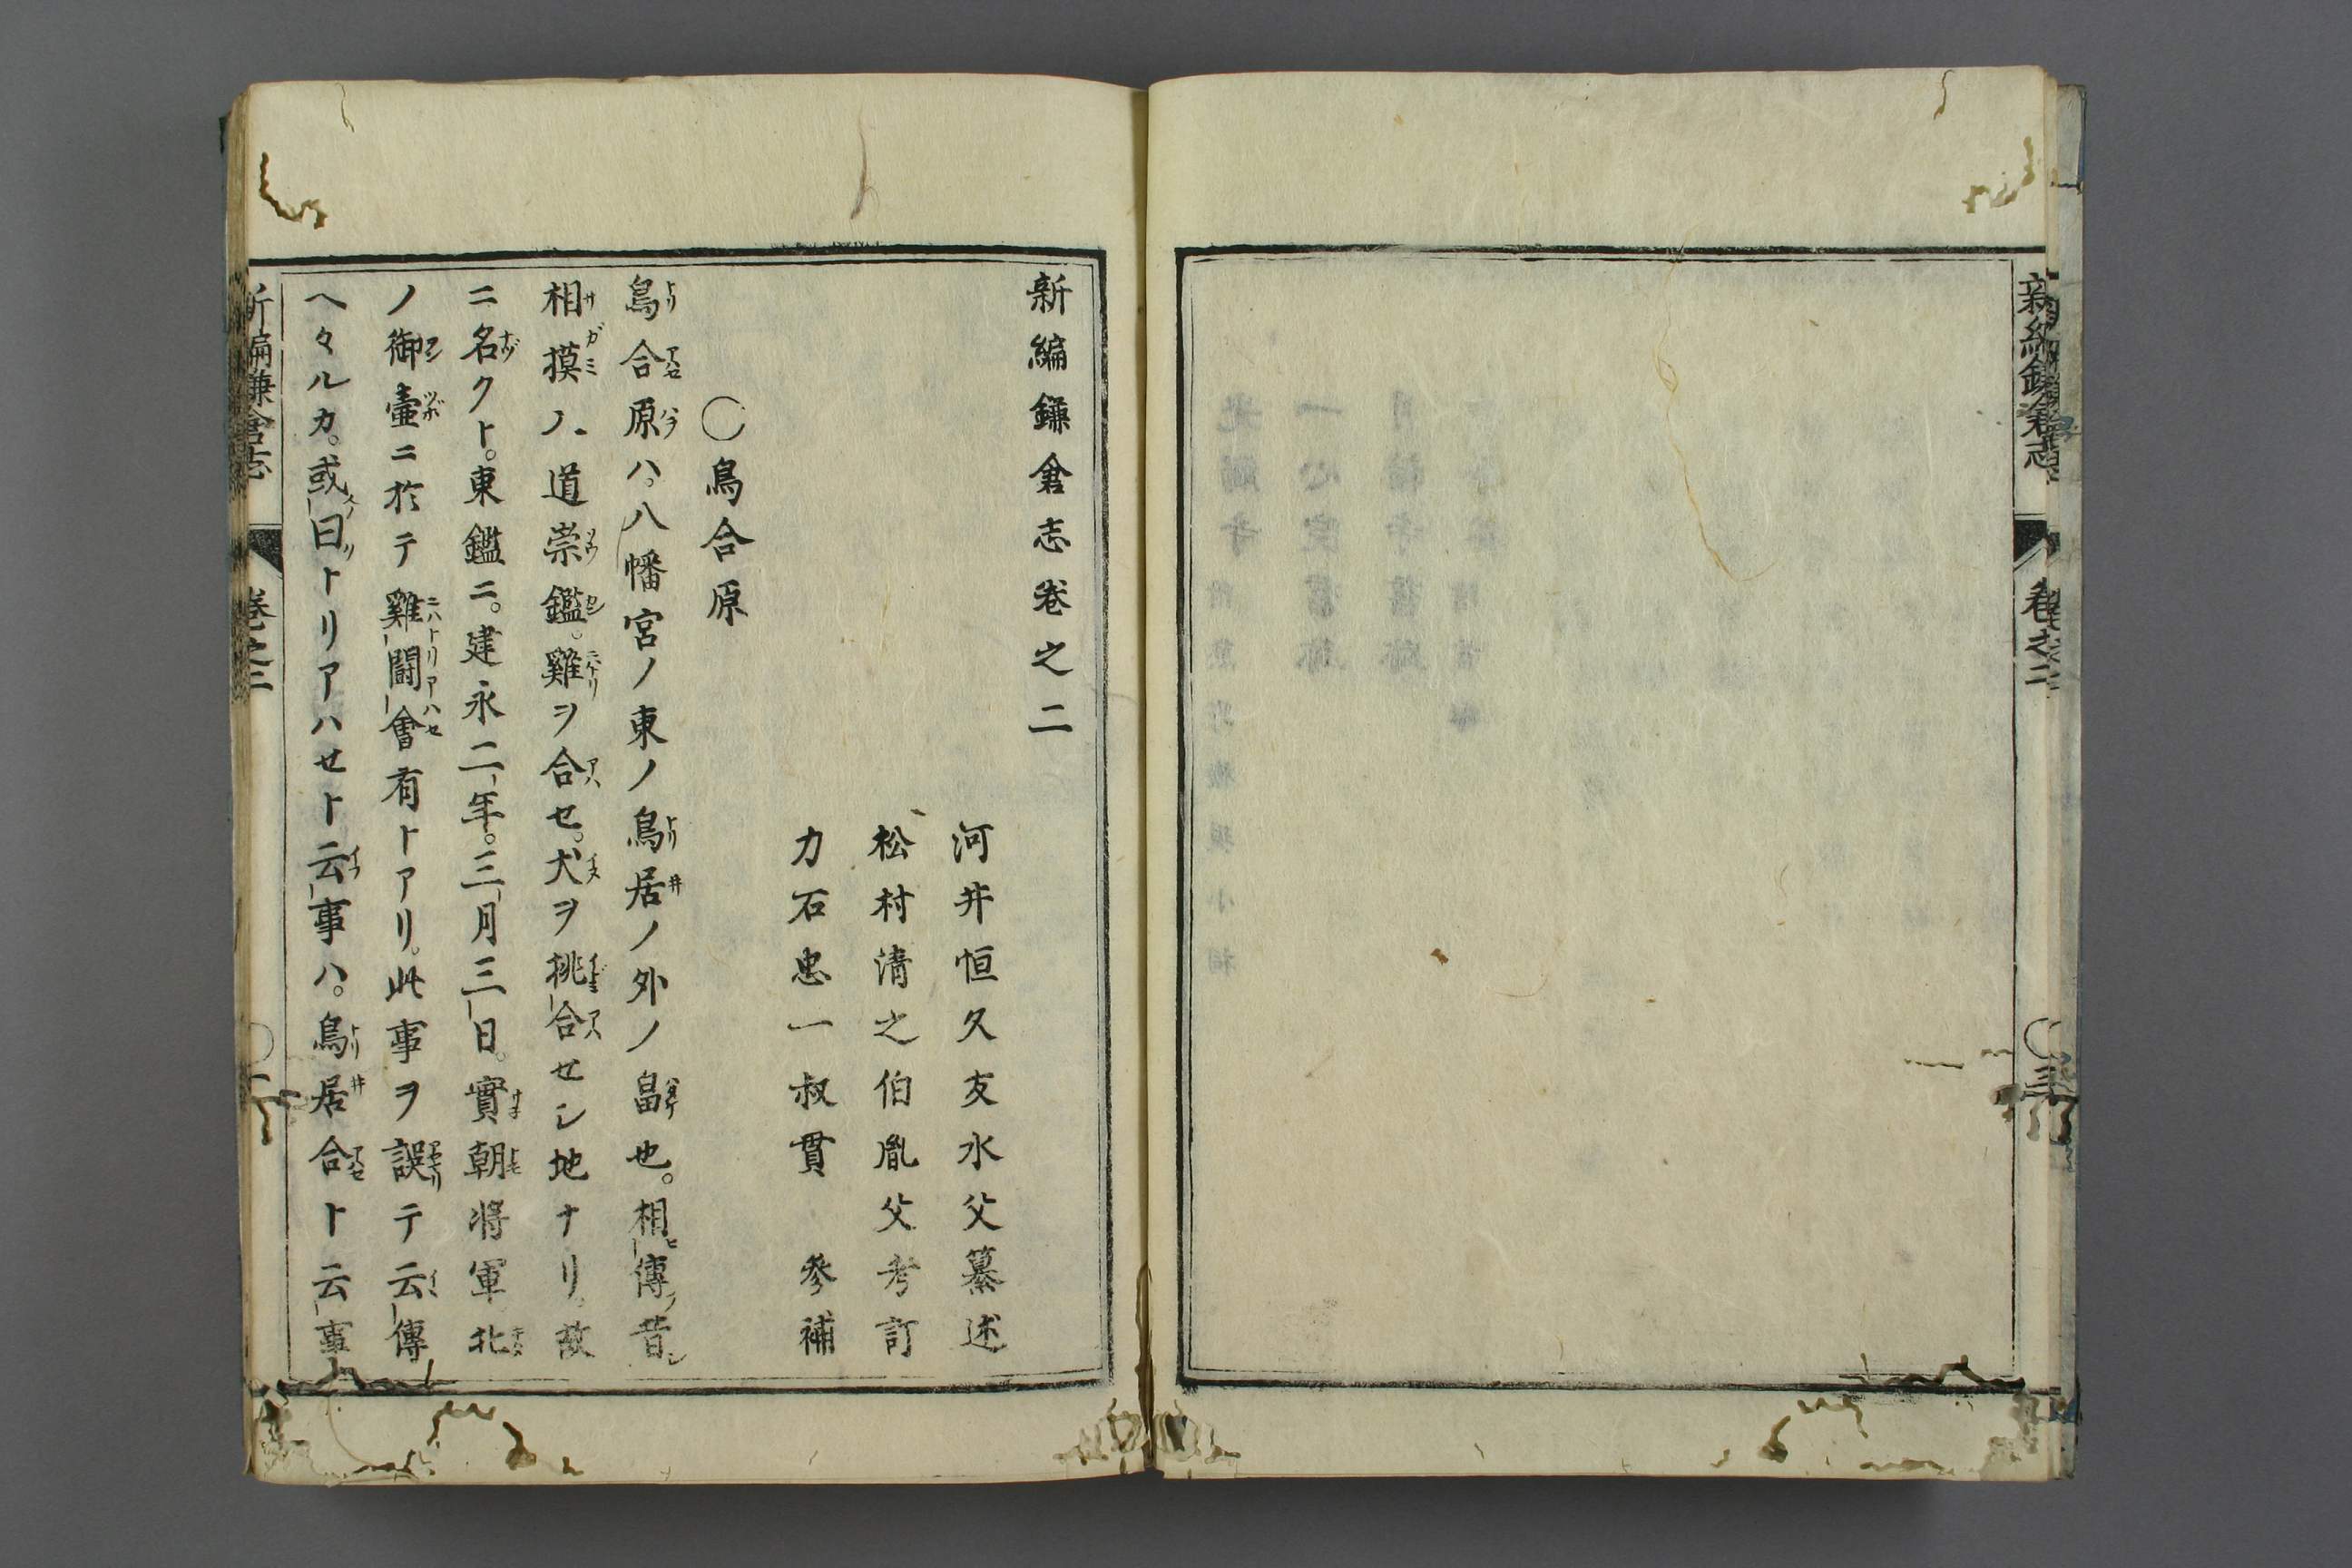 新編鎌倉志卷之二
河井恒久友水父纂述
松村清之伯胤父考訂
力石忠一叔貫　參補
○鳥合原
鳥合原ハ。八幡宮ノ東ノ鳥居ノ外ノ畠也。相傳昔シ
相摸ノ道崇鑑。雞ヲ合セ。犬ヲ挑合セシ地ナリ。故
ニ名クト。東鑑ニ。建永二年。三月三日。實朝將軍北
ノ御壷ニ於テ雞闘會有トアリ。此事ヲ誤テ云傳
ヘタルカ。或曰トリアハセト云事ハ。鳥居合ト云事
新編鎌倉志
卷之二